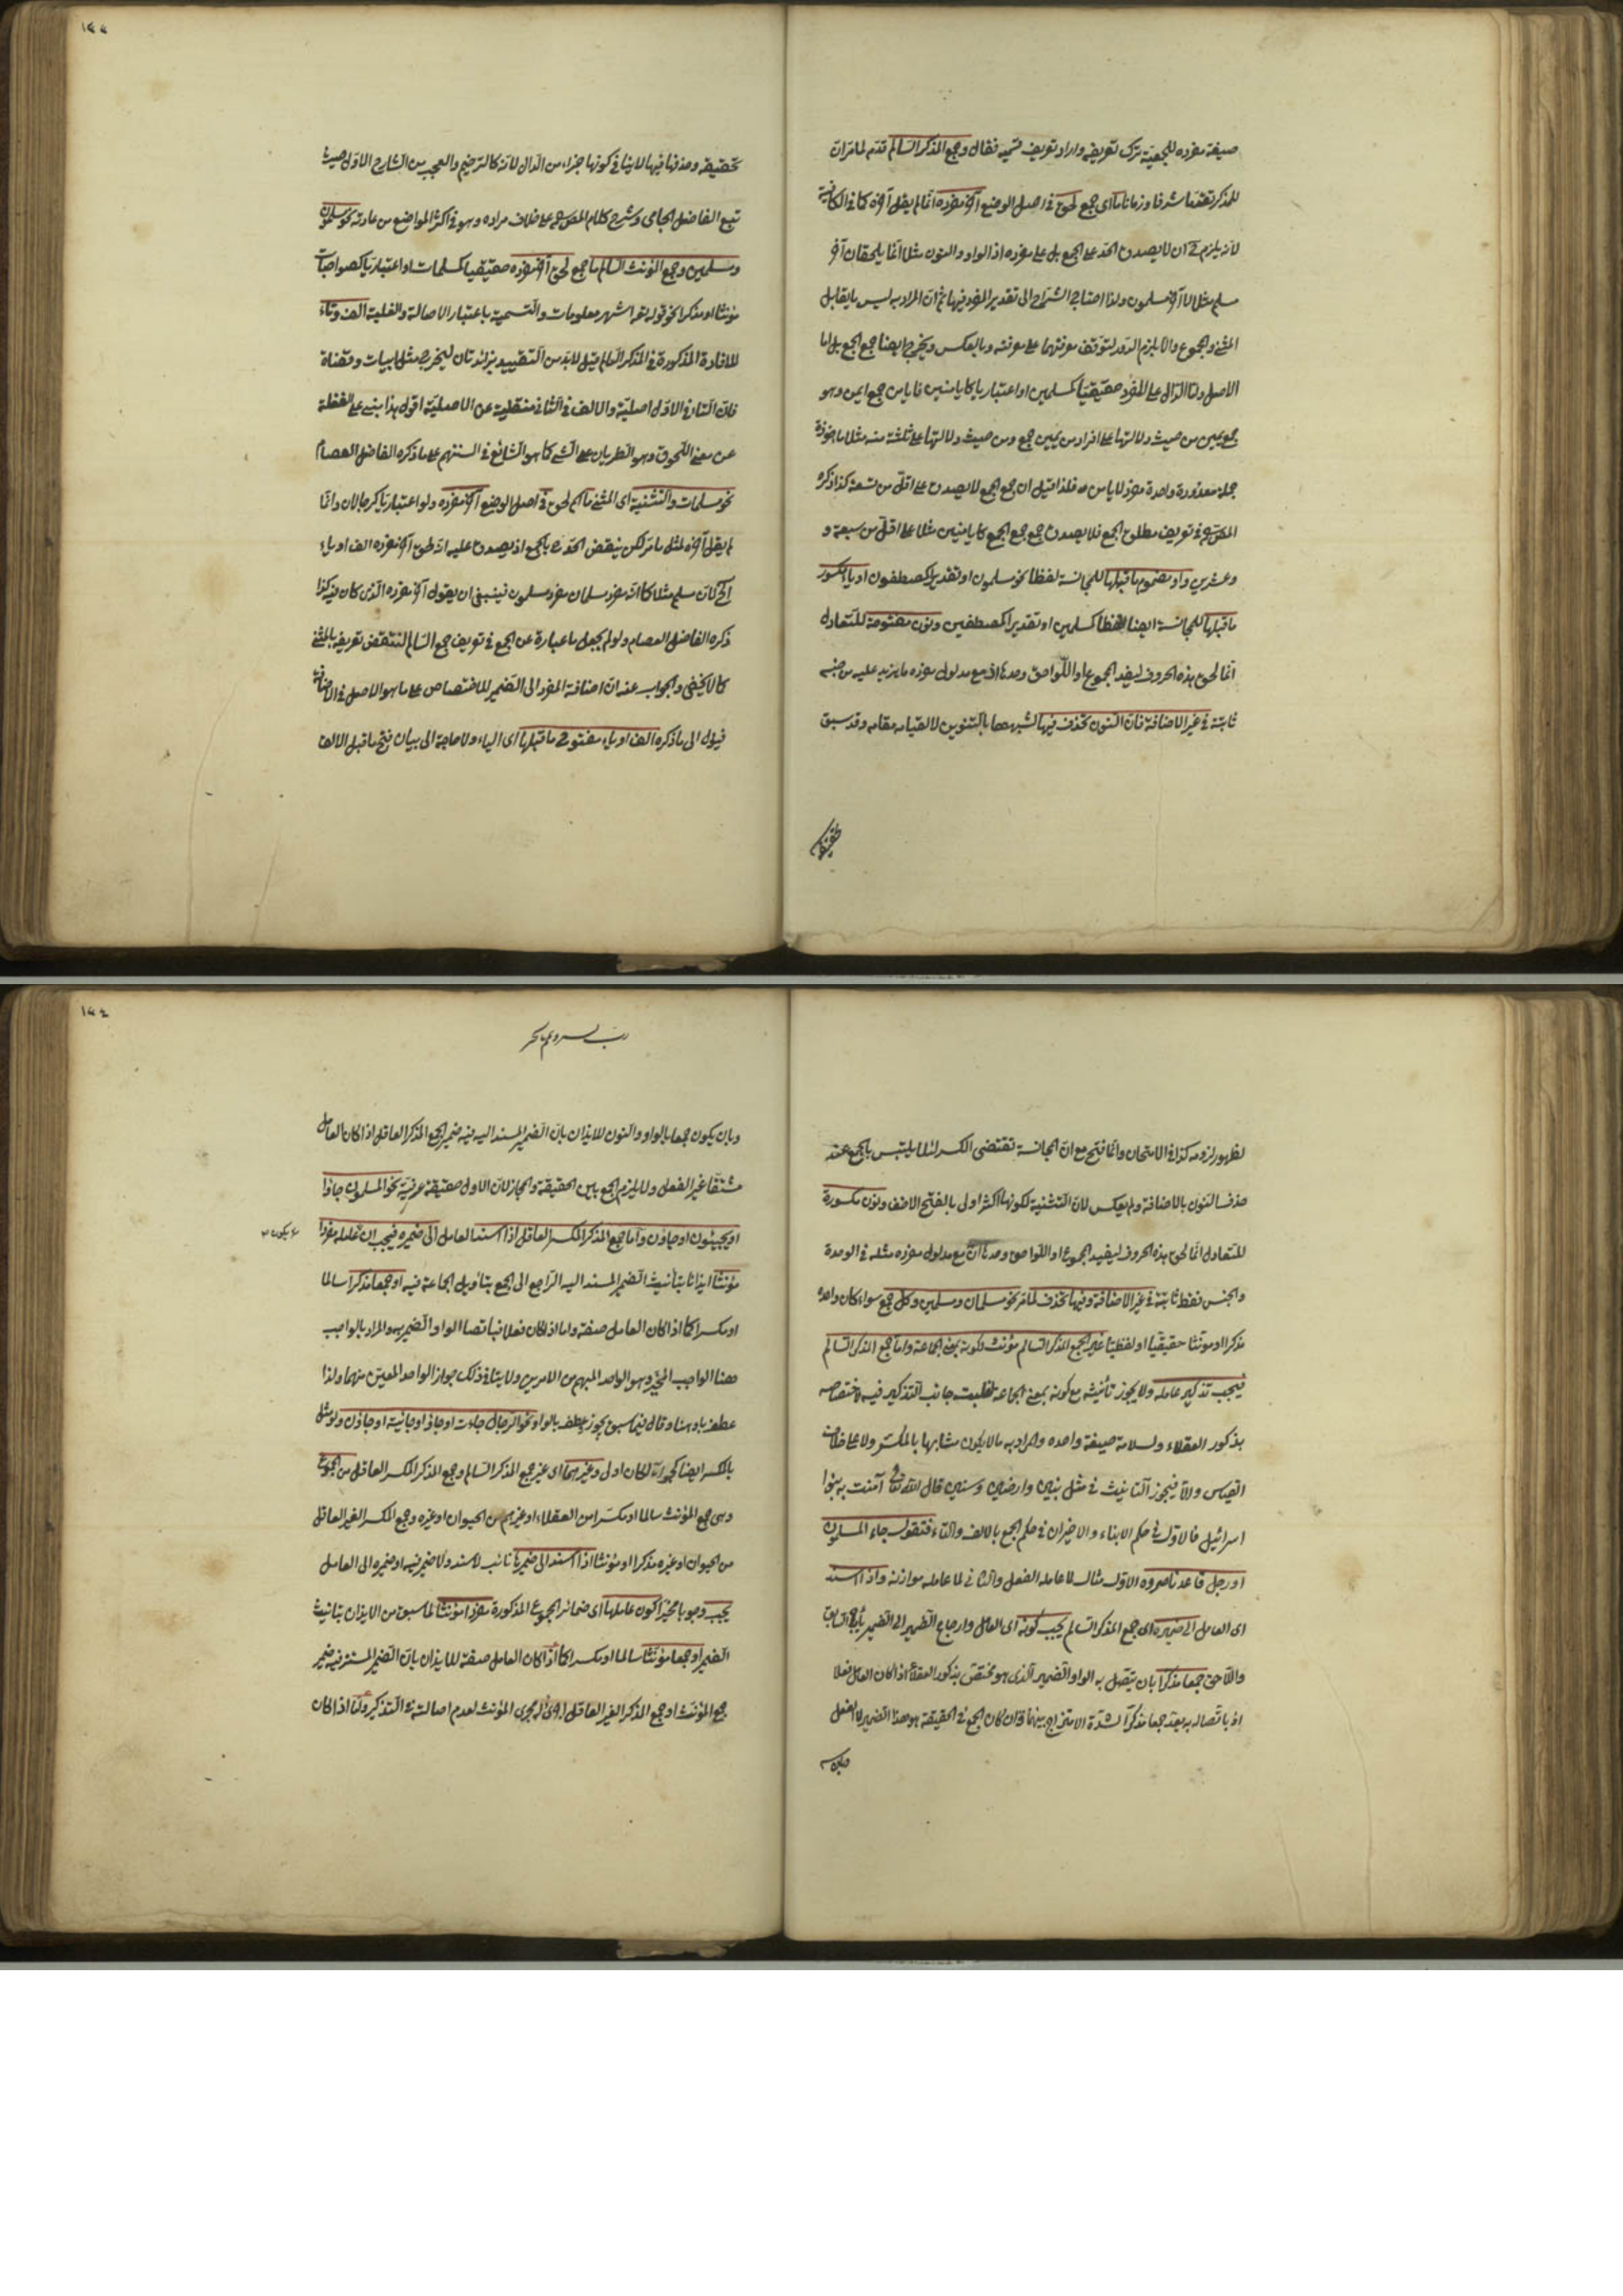 صيغة مفرده للجمعية ترك تعريفه واراد تعريف قسميه فقال وجمع المذكر السالم قدم لما مر ان
للمذكر تقدما شرفا وزمانا ما اى جمع لحق فى اصل الوضع آخر مفرده انما لم يقل آخره كما فى الكافية
لانه يلزم ح ان لا يصدق الحد على الجمع بل على مفرده اذ الواو والنون مثلا انما يلحقان آخر
مسلم مثلا لا آخر مسلمون ولذا احتاج الشراح الى تقدير المفرد فيها ثم ان المراد به ليس ما يقابل
المثنى والمجموع والا يلزم الدور لتوقف معرفتهما على معرفته وبالعكس ويخرج ايضا جمع الجمع بل اما
الاصل واما الدال على المفرد حقيقيا كمسلمين او اعتباريا كايامنين فايامن جمع ايمن وهو
جمع يمين من حيث دلالتها على افراد من يمين جمع ومن حيث دلالتها على ثلثة منه مثلا مأخوذة
جملة معدودة واحدة مفرد لايامن فلذا قيل ان جمع الجمع لا يصدق على اقل من تسعة كذا ذكره
المص فى تعريف مطلق الجمع فلا يصدق جمع جمع الجمع كايامنين مثلا على اقل من سبعة و
وعشرين واو مضموم ما قبلها للمجانسة لفظا نحو مسلمون او تقديرا كمصطفون او ياء مكسور
ما قبلها للمجانسة ايضا لفظا كمسلمين او تقديرا كمصطفين ونون مفتوحة للتعادل
انما لحق هذه الحروف ليفيد المجموع او اللواحق وحدها ان مع مدلول مفرده ما يزيد عليه من جنسه
ثابتة فى غير الاضافة فان النون تحذف فيها لشبهها بالتنوين لا لقيامه مقامه وقد سبق
تحقيقه
تحقيقه وحذفها فيها لا ينافى كونها جزء من الدال لانه كالترخيم والعجب من الشارح الاول حيث
تبع الفاضل الجامى وشرح كلام المص على خلاف مراده وهو فى اكثر المواضع من عادته نحو مسلمون
ومسلمين وجمع المؤنث السالم ما جمع لحق آخر مفرده حقيقيا كمسلمات او اعتباريا كصواحبات
مؤنثا او مذكرا نحو قوله تعالى اشهر معلومات والتسمية باعتبار الاصالة والغلبة الف وتاء
للافادة المذكورة فى المذكر السالم قيل لابد من التقييد بزائدتان ليخرج مثل ابيات وقضاة
فان التاء فى الاول اصلية والالف فى الثانى منقلبة عن الاصلية اقول هذا مبنى على الغفلة
عن معنى اللحوق وهو الطريان على الشئ كما هو الشائع فى السنتهم على ما ذكره الفاضل العصام
نحو مسلمات والتثنية اى المثنى ما اسم لحق فى اصل الوضع آخر مفرده ولو اعتباريا كرجالان وانما
لم يقل آخره لمثل ما مر لكن ينقض الحد ح بالجمع اذ يصدق عليه اذ لحق آخر مفرده الف او ياء
الخ لان مسلم مثلا كما انه مفرد مسلمان مفرد مسلمون فينبغى ان يقول آخر مفرده الذى كان فيه كذا
ذكره الفاضل العصام ولو لم يجعل ما عبارة عن الجمع فى تعريف جمع السالم لانتقض تعريفه بالمثنى
كما لا يخفى والجواب عنه ان اضافة المفرد الى الضمير للاختصاص على ما هو الاصل فى الاضافة
فيؤل الى ما ذكره الف او ياء مفتوح ما قبلها اى الياء ولا حاجة الى بيان فتح ما قبل الالف
رب يسر وتمم بالخير
لظهور لزومه كذا فى الامتحان وانما فتح مع ان المجانسة تقتضى الكسر لئلا يلتبس بالجمع عند
حذف النون بالاضافة ولم يعكس لان التثنية لكونها اكثر اولى بالفتح الاخف ونون مكسورة
للتعادل انما لحق هذه الحروف ليفيد المجموع او اللواحق وحدها ان مع مدلول مفرده مثله فى الوحدة
والجنس فقط ثابتة فى غير الاضافة وفيها تحذف لما مر نحو مسلمان ومسلمين وكل جمع سواء كان واحده
مذكرا او مؤنثا حقيقيا او لفظيا غير الجمع المذكر السالم مؤنث لكونه بمعنى الجماعة واما جمع المذكر السالم
فيجب تذكير عامله ولا يجوز تأنيثه مع كونه بمعنى الجماعة لغلبت جانب التذكير فيه لاختصاصه
بذكور العقلاء ولسلامة صيغة واحده والمراد به ما لا يكون مشابها بالمكسر ولا على خلاف
القياس والا فيجوز التأنيث فى مثل بنين وارضين وسنين قال الله تعالى آمنت به بنوا
اسرائيل فالاول فى حكم الابناء والاخيران فى حكم الجمع بالالف والتاء فتقول جاء المسلمون
او رجل قاعد ناصروه الاول مثال لما عامله الفعل والثانى لما عامله موازنه واذا اسند
اى العامل الى ضميره اى جمع المذكر السالم يجب كونه اى العامل وارجاع الضمير الى الضمير يأباه السابق
واللاحق جمعا مذكرا بان يتصل به الواو الضمير الذى هو مختص بذكور العقلاء اذا كان العامل فعلا
اذ باتصاله به يعد جمعا مذكرا لشدة الامتزاج بينهما وان كان الجمع فى الحقيقة هو هذا الضمير لا الفعل
وبان يكون
وبان يكون جمعا بالواو والنون للايذان بان الضمير المسند اليه فيه ضمير الجمع المذكر العاقل اذا كان العامل
مشتقا غير الفعل ولا يلزم الجمع بين الحقيقة والمجاز لان الاول حقيقة عرفية نحو المسلمون جاؤا
او يجيئون او جاؤن واما جمع المذكر المكسر العاقل اذا اسند العامل الى ضميره فيجب ان عامله مفردا
يكون
مؤنثا ايذانا بتأنيث الضمير المسند اليه الراجع الى الجمع بتأويل الجماعة فيه او جمعا مذكرا سالما
او مكسرا كما اذا كان العامل صفة واما اذا كان فعلا فباتصال الواو الضمير به والمراد بالواجب
هنا الواجب المخير وهو الواحد المبهم من الامرين ولا ينافى ذلك جواز الواحد المعين منهما ولذا
عطف باو هنا وقال فيما سبق يجوز بعطف بالواو نحو الرجال جاءت او جاؤا او جائية او جاؤن ولو مثل
بالمكسر ايضا لكان اولى وغيرهما اى غير جمع المذكر السالم وجمع المذكر المكسر العاقل من الجموع
وهى جمع المؤنث سالما او مكسرا من العقلاء او غيرهم من الحيوان او غيره وجمع المكسر الغير العاقل
من الحيوان او غيره مذكرا او مؤنثا اذا اسند الى ضميرها نائب لاسند ولا ضمير فيه او ضميره الى العامل
يجب وجوبا مخيرا كون عاملها اى ضمائر الجموع المذكورة مفردا مؤنثا لما سبق من الايذان بتأنيث
الضمير او جمعا مؤنثا سالما او مكسرا كما اذا كان العامل صفة للايذان بان الضمير المستتر فيه ضمير
جمع المؤنث او جمع المذكر الغير العاقل المجرى مجرى المؤنث لعدم اصالته فى التذكير واما اذا كان